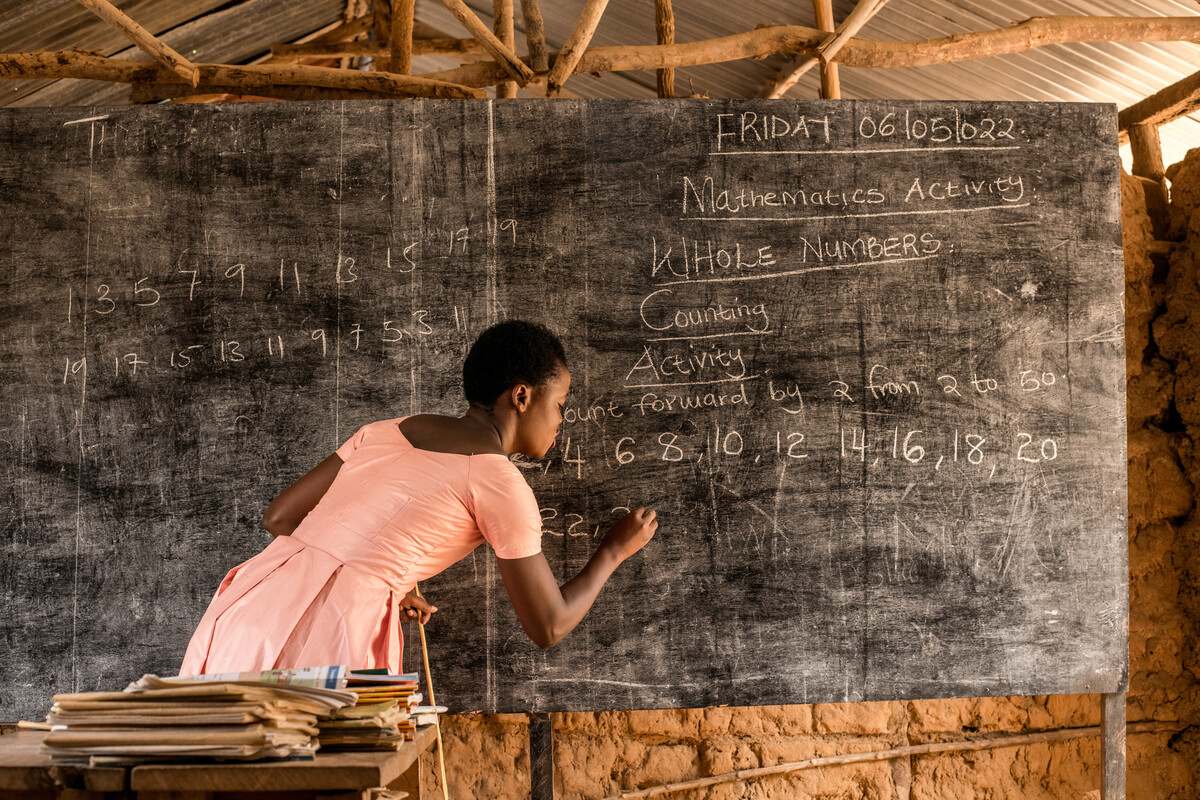 FRIDAY 06/05/022.
Mathematics Activity.
WHOLE NUMBERS.
Counting
Activity
ount forward by 2 from 2 to 50.
, 4, 6 8, 10, 12 14, 16, 18, 20
22, 2
1 3 5 7 9 11 13 15 17 19
19 17 15 13 11 9 7 5 3